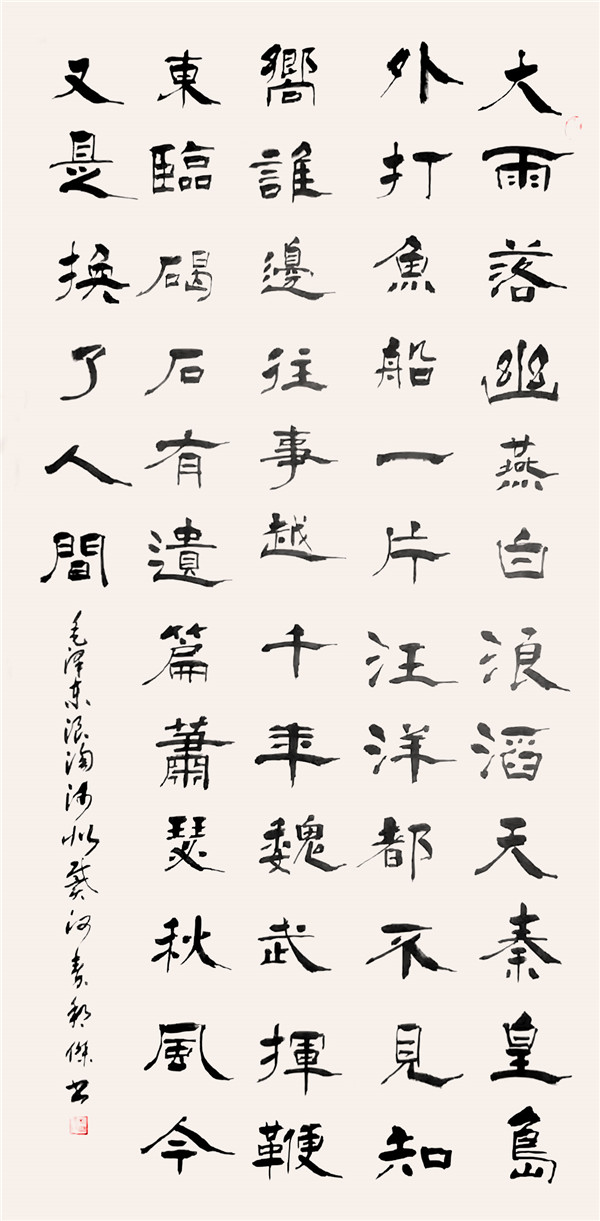 大雨落幽燕白浪滔天秦皇島
外打魚船一片汪洋都不見知
嚮誰邊往事越千年魏武揮鞭
東臨碣石有遺篇蕭瑟秋風今
又是換了人間
毛泽东浪淘沙北戴河傑书